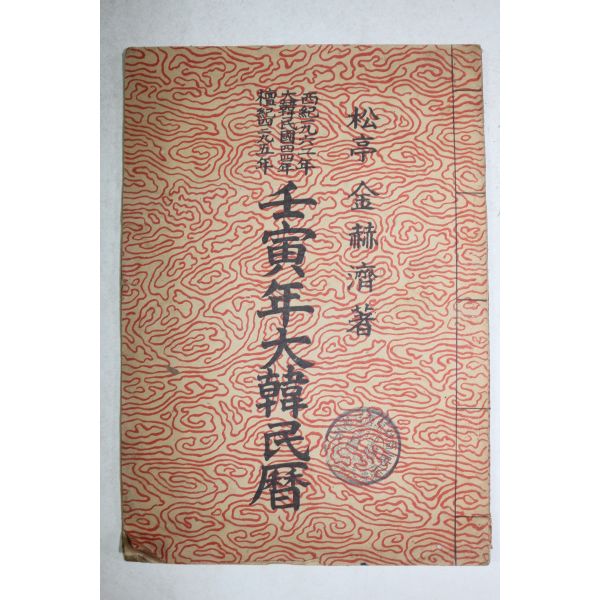 松亭 金赫濟 著
西紀一九六二年
大韓民國四四年
檀紀四二九五年
壬寅年大韓民暦